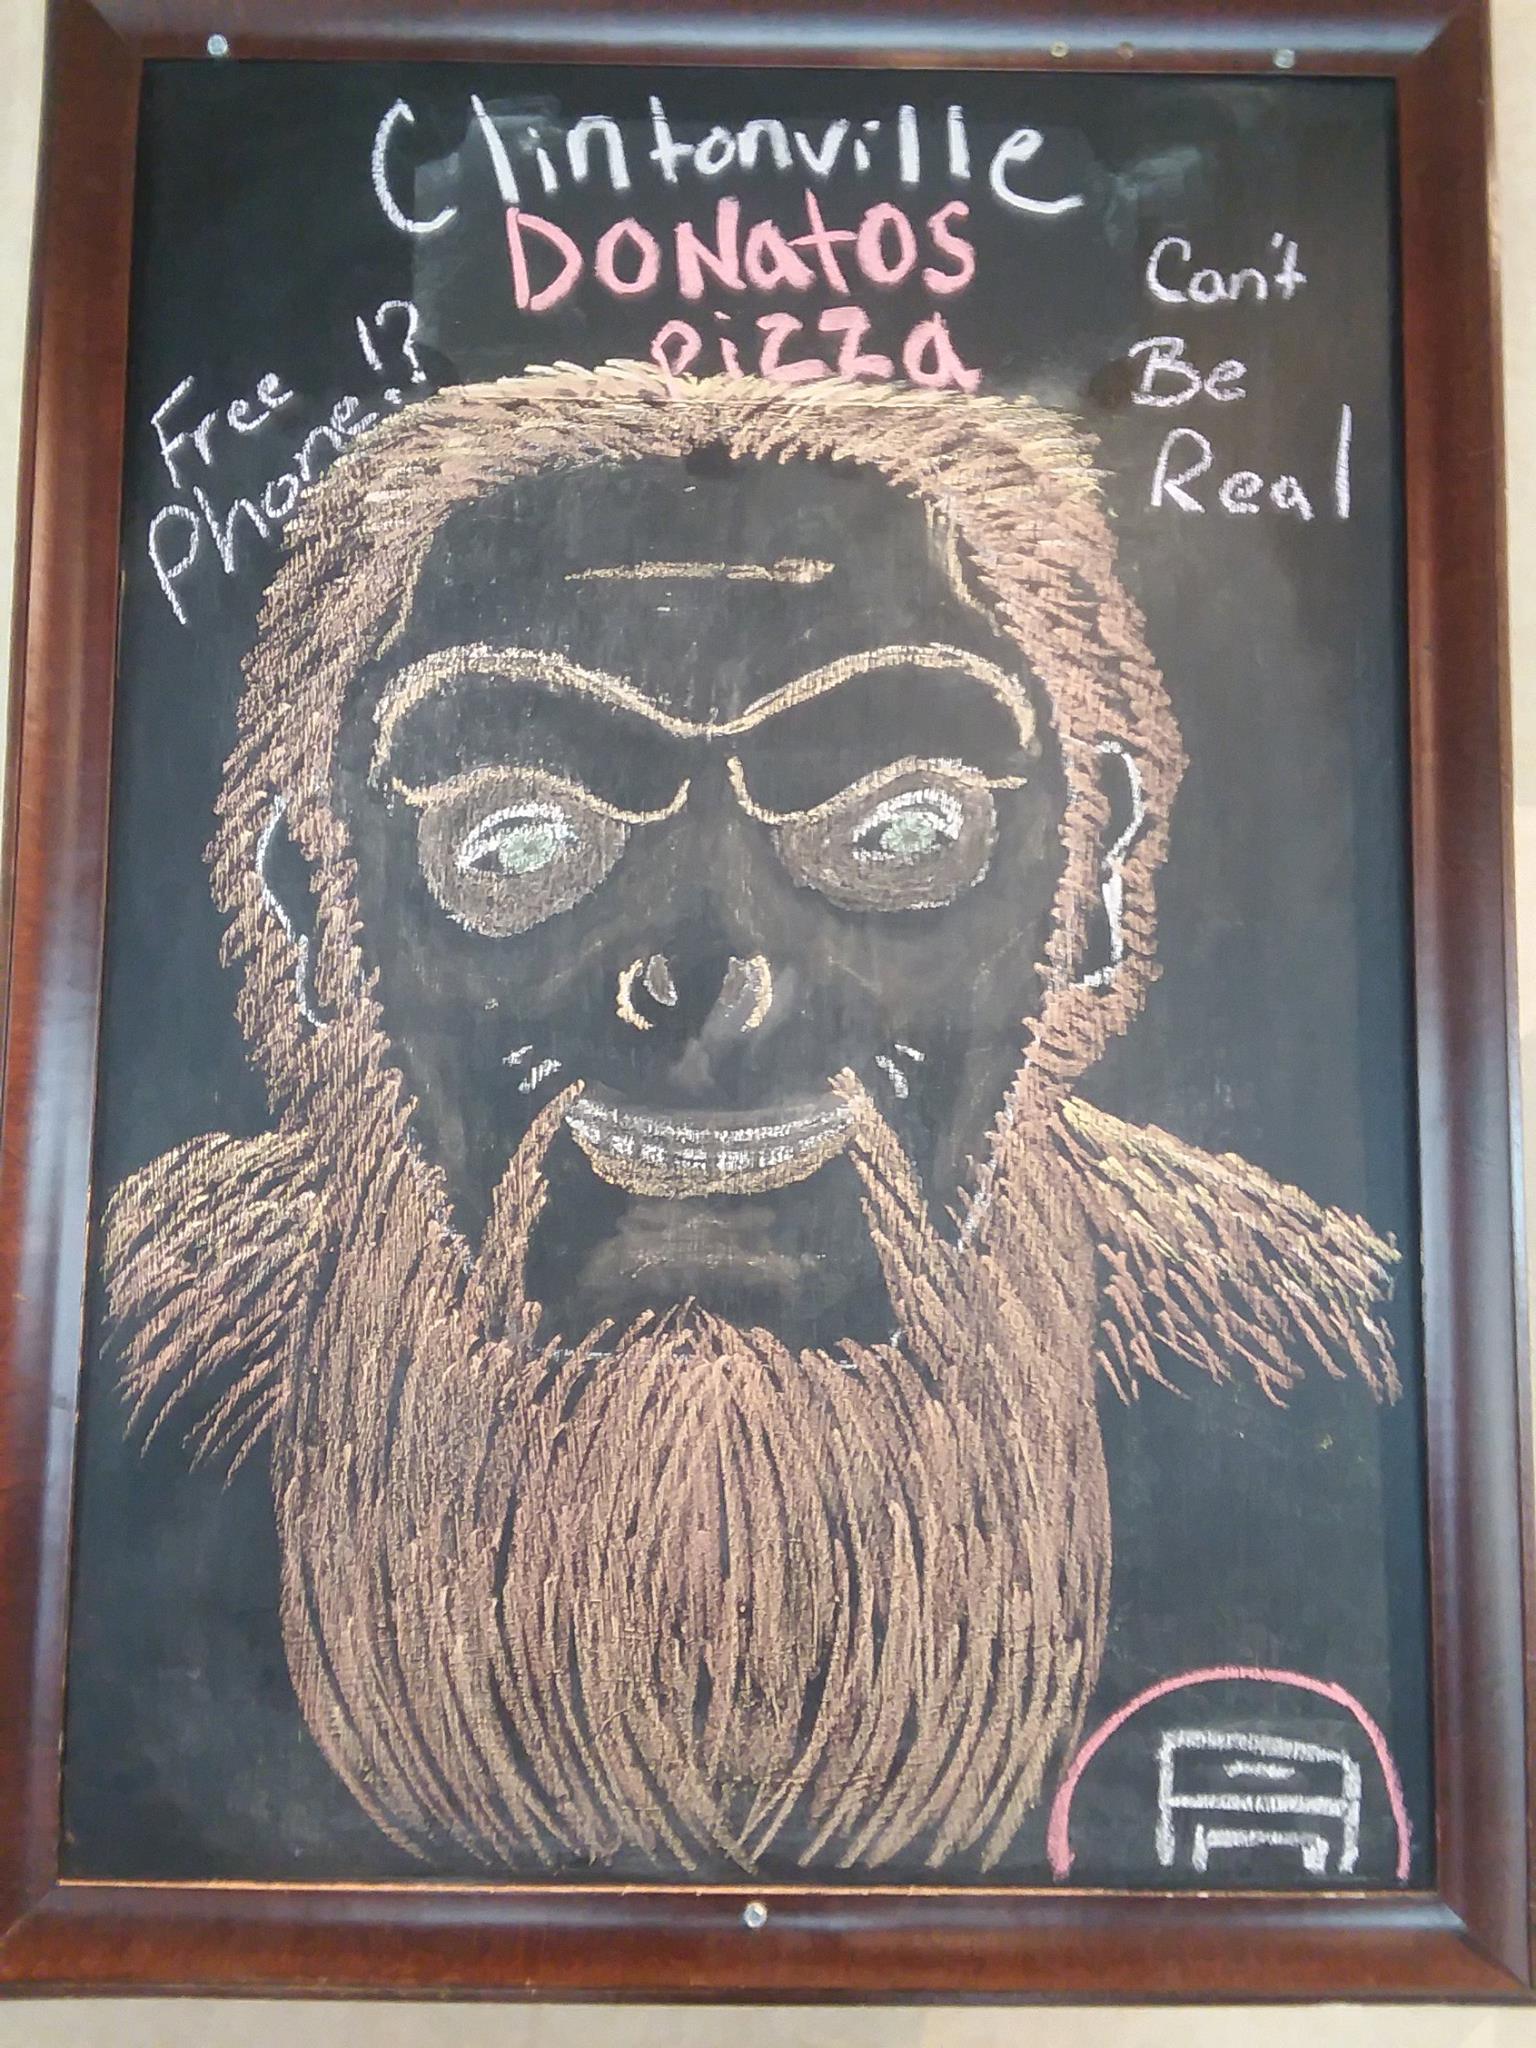 Clintonville
DONatos
pizza
Free
Phone!?
Can't
Be
Real